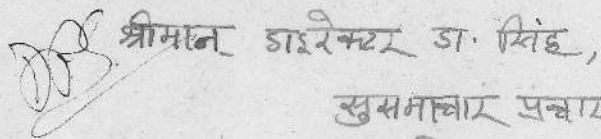 श्रीमान् डाइरेक्टर डा. सिंह,
सुसमाचार प्रचार